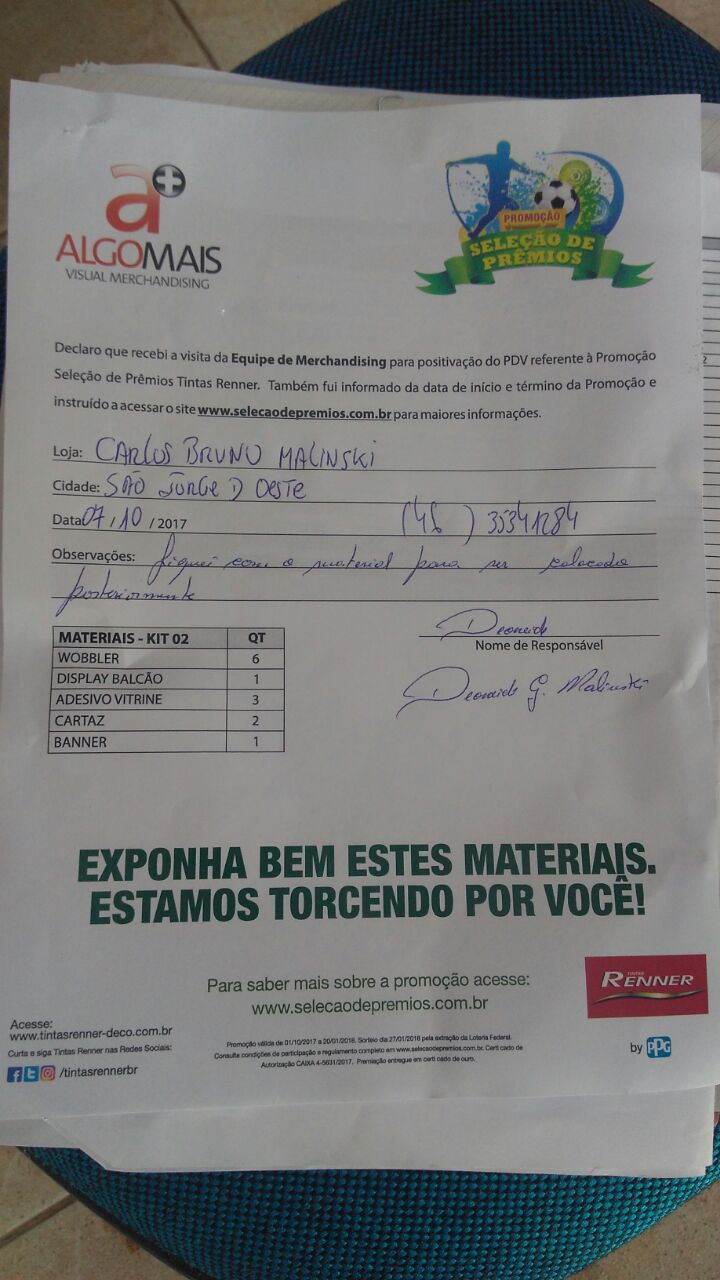 a+
ALGOMAIS
VISUAL MERCHANDISING
PROMOÇÃO
SELEÇÃO DE
PRÊMIOS
Declaro que recebi a visita da Equipe de Merchandising para positivação do PDV referente à Promoção
Seleção de Prêmios Tintas Renner. Também fui informado da data de início e término da Promoção e
instruído a acessar o site www.selecaodepremios.com.br para maiores informações.
Loja: CARLOS BRUNO MALINSKI
Cidade: SÃO JORGE D OESTE
Data 07/10/2017 (46) 35341284
Observações: fiquei com o material para ser colocado
posteriormente
Deoneide
Nome de Responsável
Deoneide G. Malinski
MATERIAIS - KIT 02 QT
WOBBLER 6
DISPLAY BALCÃO 1
ADESIVO VITRINE 3
CARTAZ 2
BANNER 1
EXPONHA BEM ESTES MATERIAIS.
ESTAMOS TORCENDO POR VOCÊ!
Para saber mais sobre a promoção acesse:
www.selecaodepremios.com.br
TINTAS
RENNER
by PPG
Acesse:
www.tintasrenner-deco.com.br
Curta e siga Tintas Renner nas Redes Sociais:
/tintasrennerbr
Promoção válida de 01/10/2017 a 20/01/2018. Sorteio dia 27/01/2018 pela extração da Loteria Federal.
Consulte condições de participação e regulamento completo em www.selecaodepremios.com.br. Certi cado de
Autorização CAIXA 4-5631/2017. Premiação entregue em certi cado de ouro.